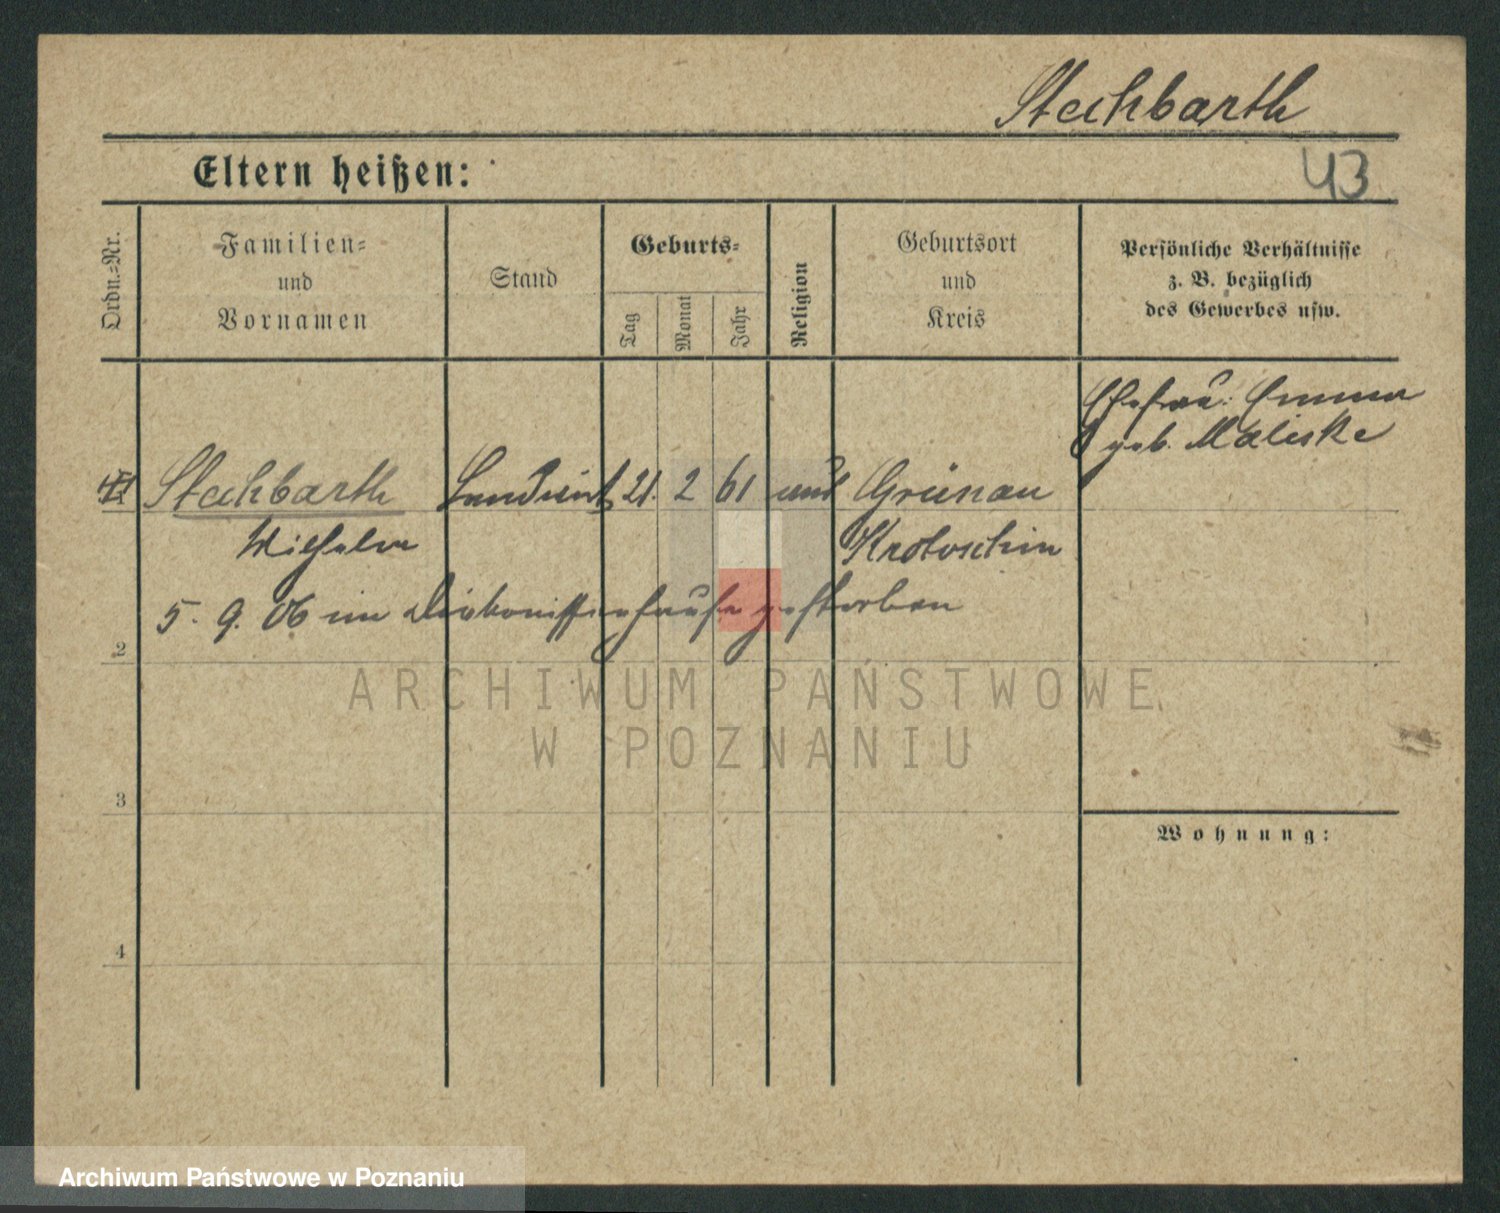 Stechbarth
Eltern heißen:
43
Ordn.=Nr.
Familien=
und
Vornamen
Stand
Geburts=
Tag
Monat
Jahr
Religion
Geburtsort
und
Kreis
Persönliche Verhältnisse
z. B. bezüglich
des Gewerbes usw.
Ehefrau: Emma
geb. Maliske
Stechbarth Landwirt 21. 2 61 Grünau
Wilhelm Krotoschin
5. 9. 06 im Diakonissenhause gestorben
2
ARCHIWUM PAŃSTWOWE
W POZNANIU
3
Wohnung:
4
Archiwum Państwowe w Poznaniu